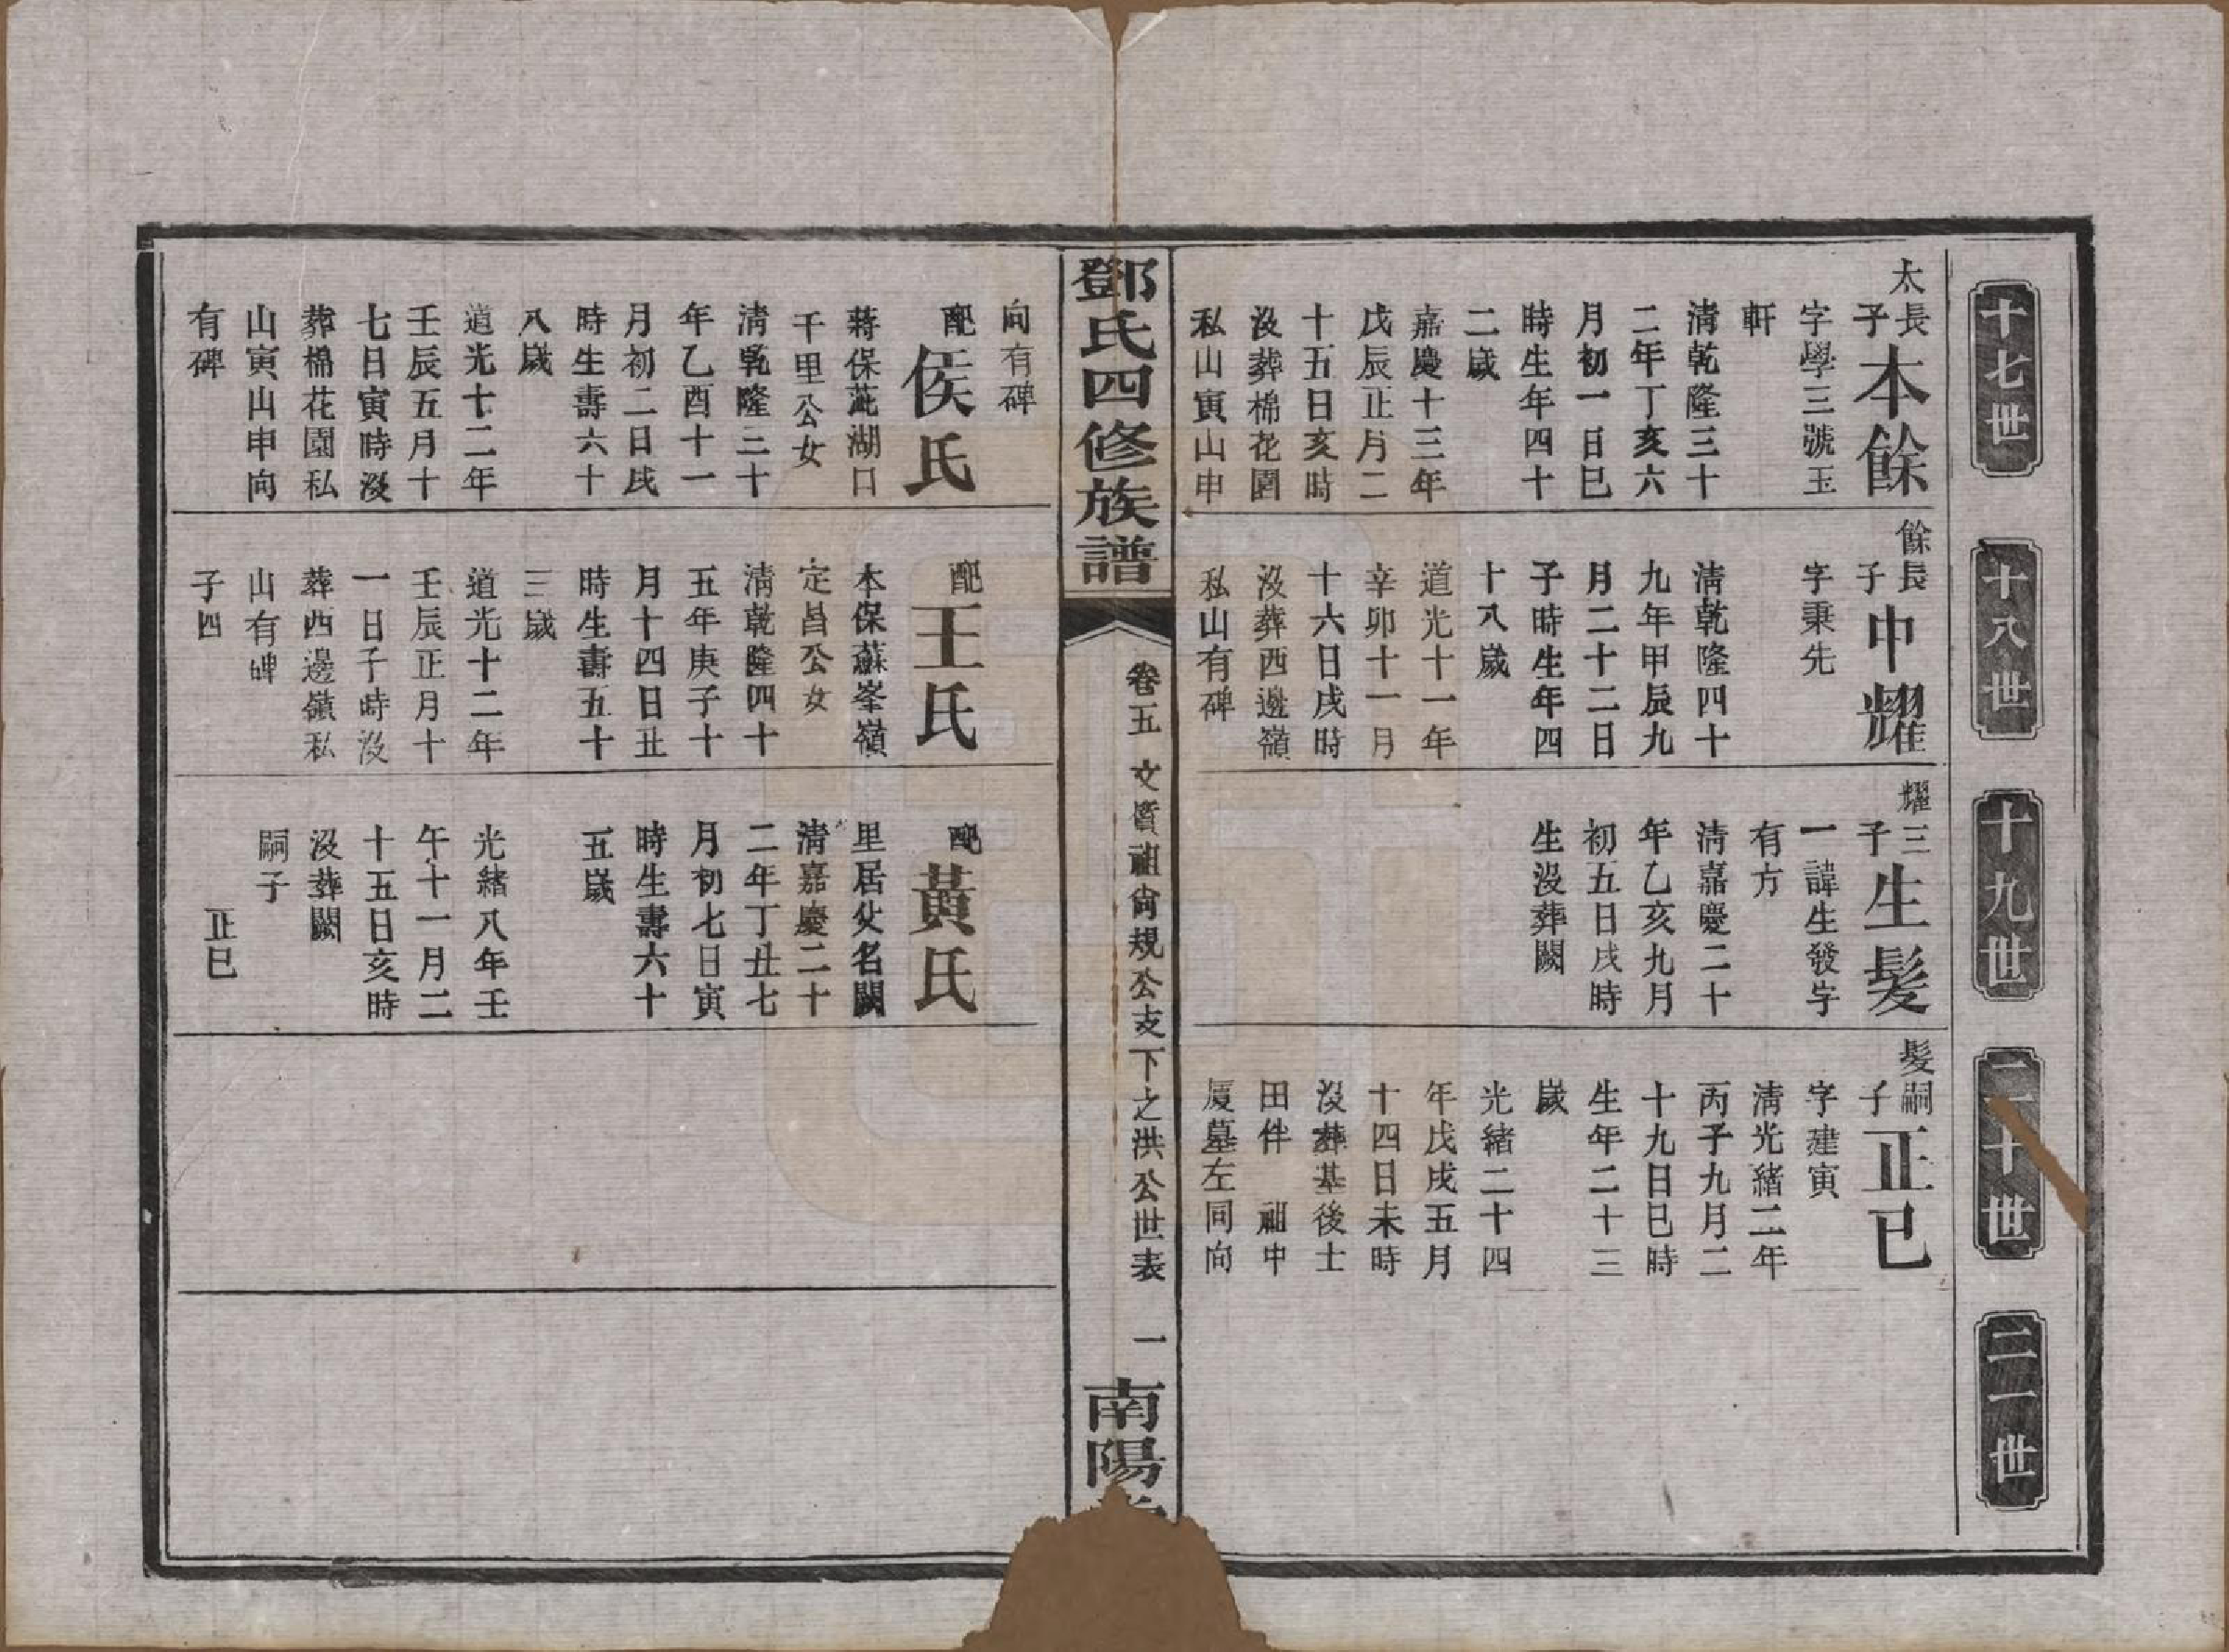 十七世
十八世
十九世
二十世
二一世
太長子本餘
字學三號玉
軒
清乾隆三十
二年丁亥六
月初一日巳
時生年四十
二歲
嘉慶十三年
戊辰正月二
十五日亥時
沒葬棉花園
私山寅山申
向有碑
配侯氏
蔣保茈湖口
千里公女
清乾隆三十
年乙酉十一
月初二日戌
時生壽六十
八歲
道光十二年
壬辰五月十
七日寅時沒
葬棉花園私
山寅山申向
有碑
餘長子中耀
字秉先
清乾隆四十
九年甲辰九
月二十二日
子時生年四
十八歲
道光十一年
辛卯十一月
十六日戌時
沒葬西邊嶺
私山有碑
配王氏
本保蘇峯嶺
定昌公女
清乾隆四十
五年庚子十
月十四日丑
時生壽五十
三歲
道光十二年
壬辰正月十
一日子時沒
葬西邊嶺私
山有碑
子四
耀三子生髮
一諱生發字
有方
清嘉慶二十
年乙亥九月
初五日戌時
生沒葬闕
配黃氏
里居父名闕
清嘉慶二十
二年丁丑七
月初七日寅
時生壽六十
五歲
光緒八年壬
午十一月二
十五日亥時
沒葬闕
嗣子
正已
髮嗣子正已
字建寅
清光緒二年
丙子九月二
十九日巳時
生年二十三
歲
光緒二十四
年戊戌五月
十四日未時
沒葬基後士
田伴 祖中
厦墓左同向
鄧氏四修族譜
卷五 文質祖尙規公支下之洪公世表 一
南陽